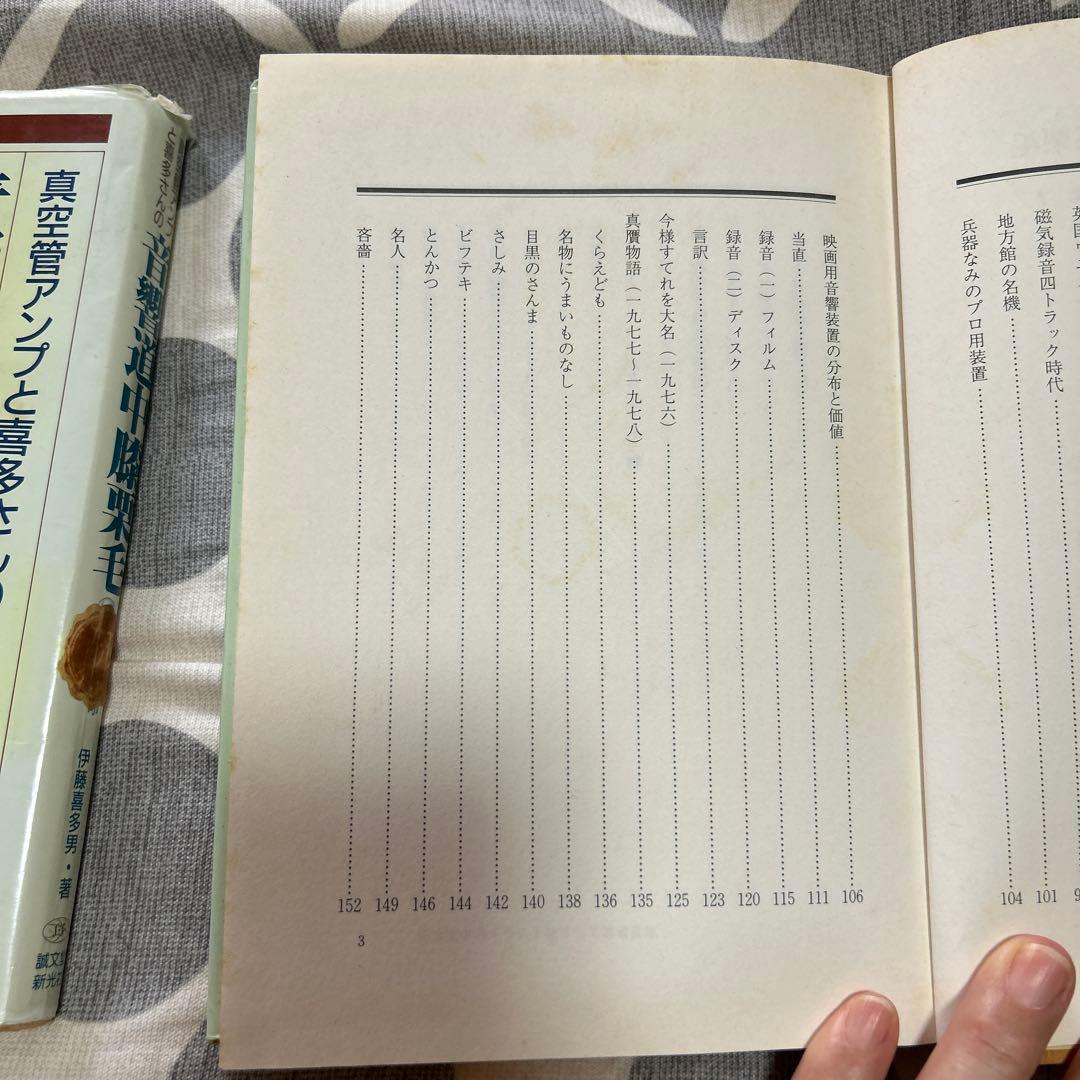 兵器なみのプロ用装置
地方館の名機 104
磁気録音四トラック時代 101
映画用音響装置の分布と価値 106
当直 111
録音（一）フィルム 115
録音（二）ディスク 120
言訳 123
今様すてれを大名（一九七六） 125
真贋物語（一九七七〜一九七八） 135
くらえども 136
名物にうまいものなし 138
目黒のさんま 140
さしみ 142
ビフテキ 144
とんかつ 146
名人 149
吝嗇 152
3
真空管アンプと喜多さんの
と喜多さんの
音響道中膝栗毛
伊藤喜多男・著
誠文堂
新光社